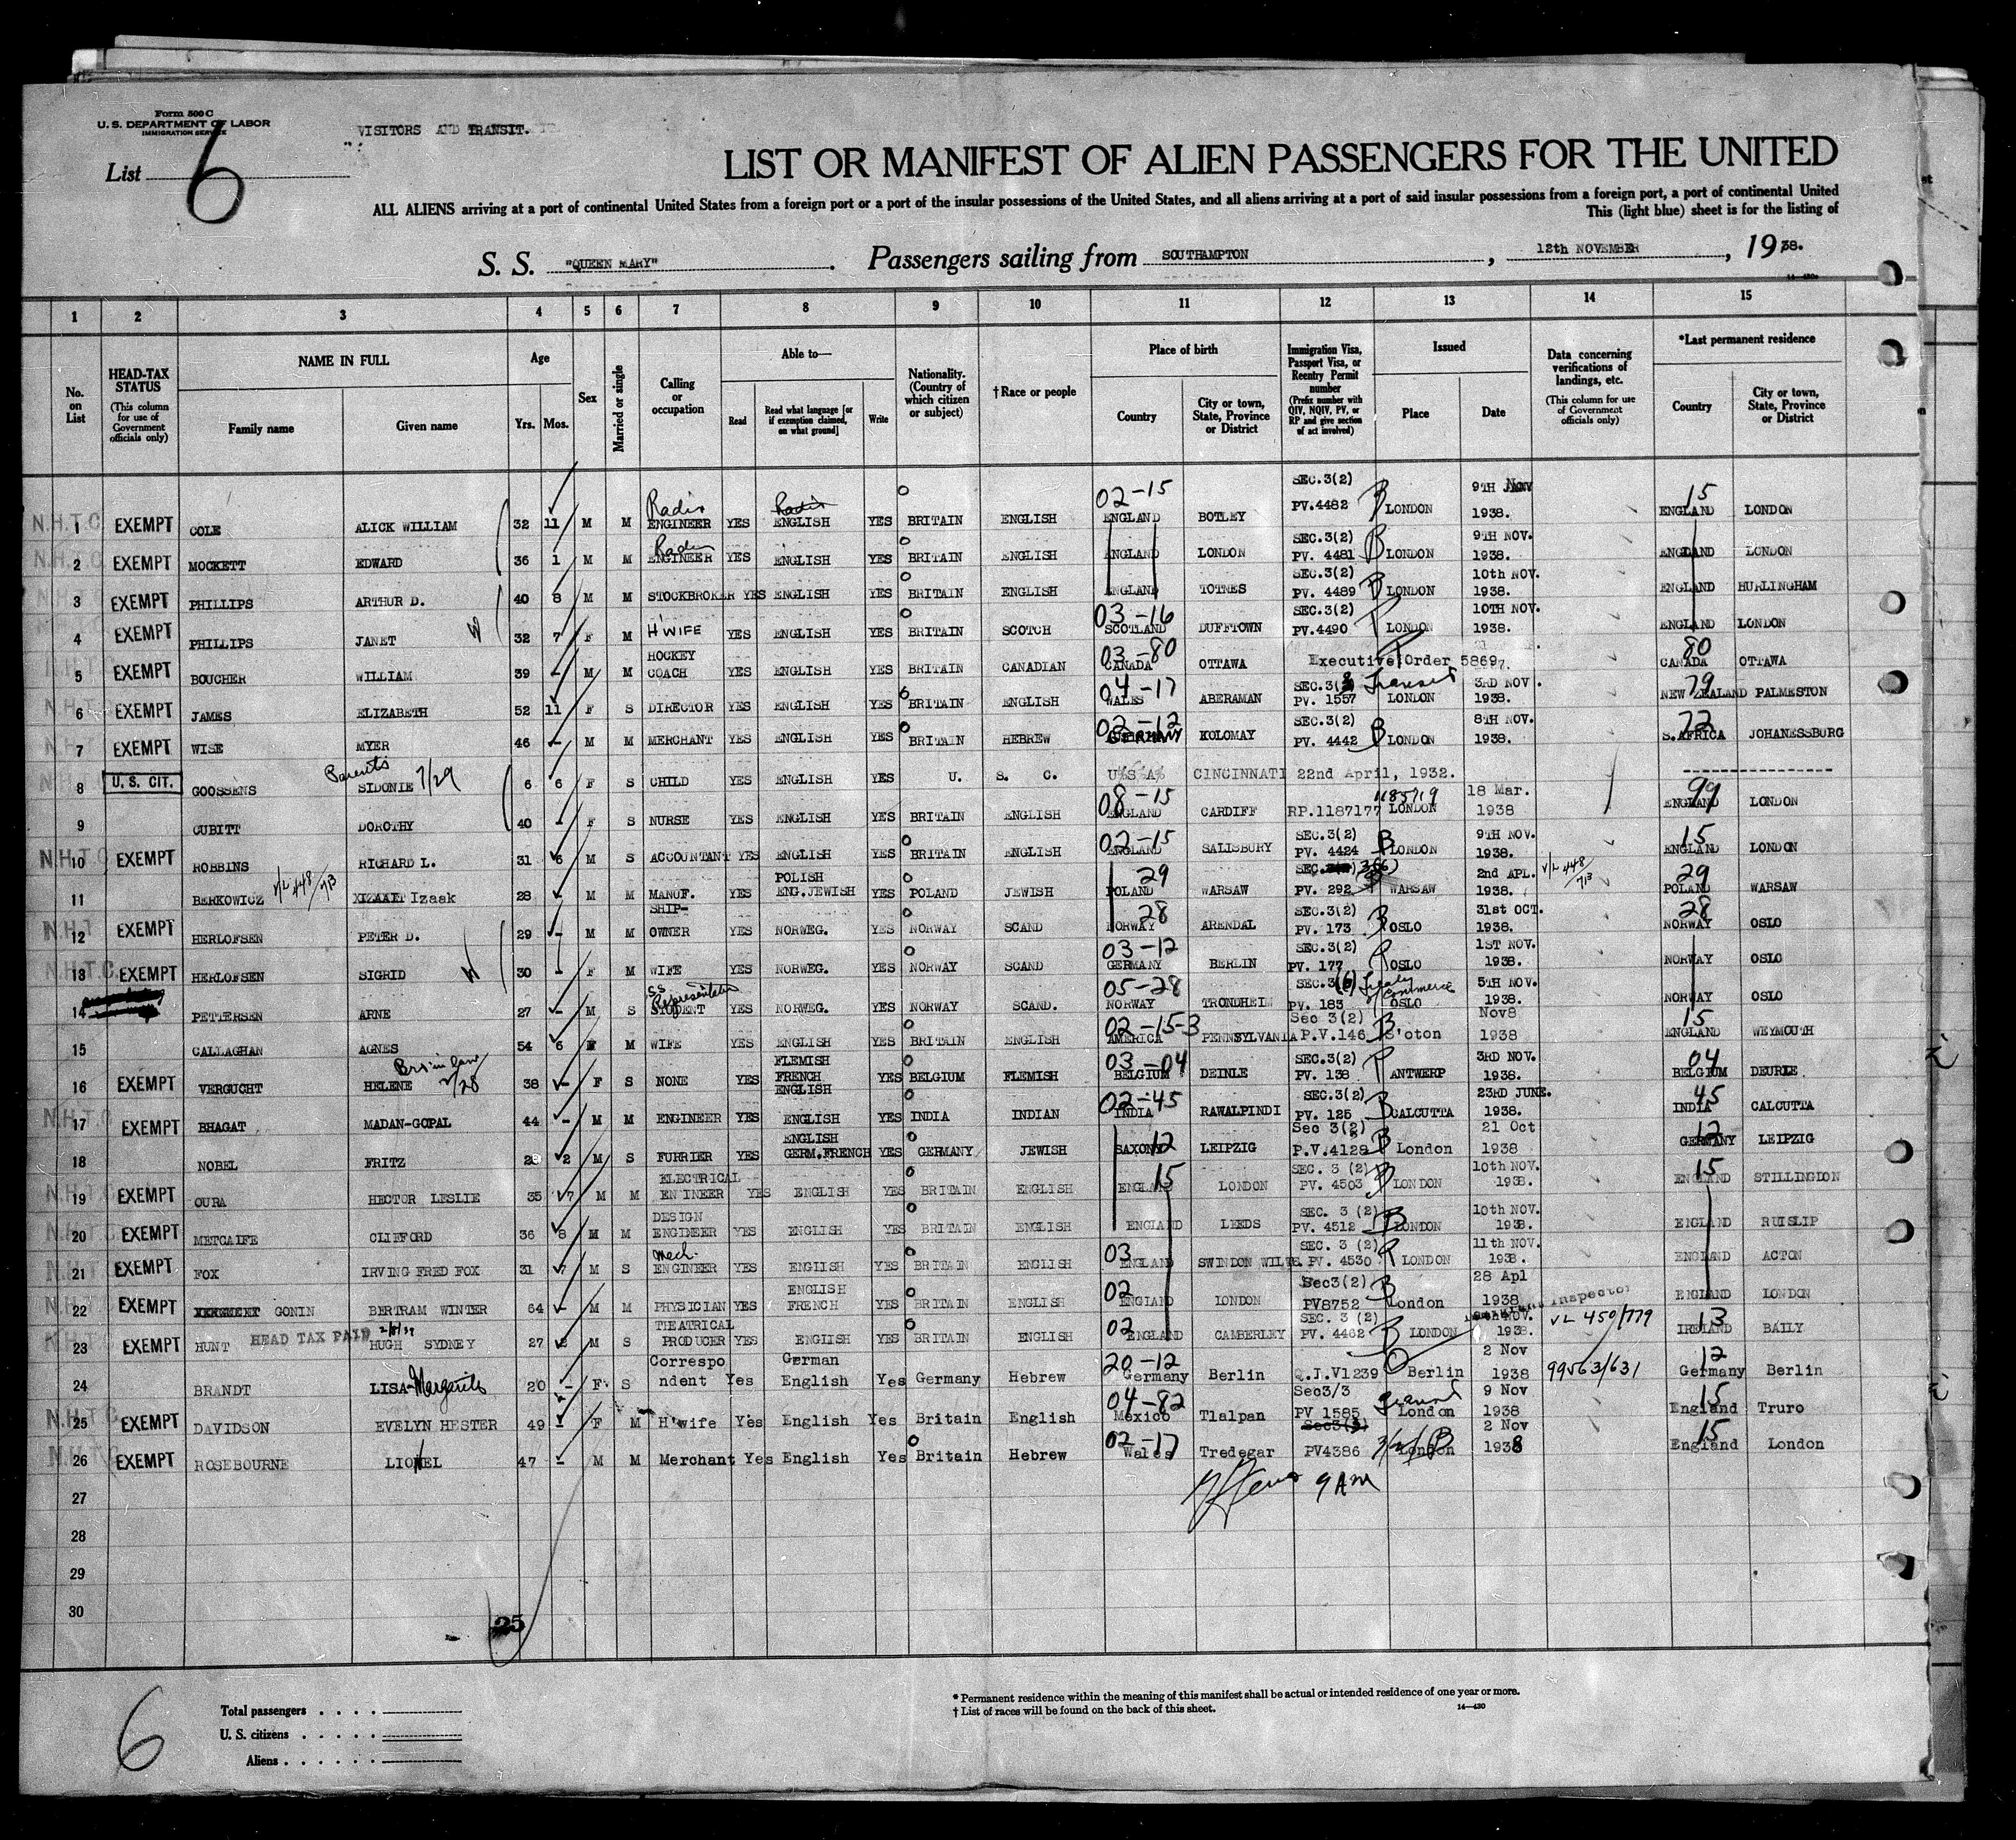 Form 500 C
U. S. DEPARTMENT OF LABOR
IMMIGRATION SERVICE
VISITORS AND TRANSIT.
List 6
LIST OR MANIFEST OF ALIEN PASSENGERS FOR THE UNITED
ALL ALIENS arriving at a port of continental United States from a foreign port or a port of the insular possessions of the United States, and all aliens arriving at a port of said insular possessions from a foreign port, a port of continental United
This (light blue) sheet is for the listing of
S. S. "QUEEN MARY". Passengers sailing from SOUTHAMPTON, 12th NOVEMBER, 1938.
1 2 3 4 5 6 7 8 9 10 11 12 13 14 15
No. on List
HEAD-TAX STATUS (This column for use of Government officials only)
NAME IN FULL Family name Given name
Age Yrs. Mos.
Sex
Married or single
Calling or occupation
Able to— Read Read what language [or if exemption claimed, on what ground] Write
Nationality. (Country of which citizen or subject)
†Race or people
Place of birth Country City or town, State, Province or District
Immigration Visa, Passport Visa, or Reentry Permit number (Prefix number with QIV, NQIV, PV, or RP and give section of act involved)
Issued Place Date
Data concerning verifications of landings, etc. (This column for use of Government officials only)
*Last permanent residence Country City or town, State, Province or District
N.H.T.C 1 EXEMPT COLE ALICK WILLIAM 32 11 M M Radio ENGINEER YES Radio ENGLISH YES BRITAIN ENGLISH 02-15 ENGLAND BOTLEY SEC.3(2) PV.4482 B LONDON 9TH Nov 1938. 15 ENGLAND LONDON
N.H.T.C 2 EXEMPT MOCKETT EDWARD 36 1 M M Radio ENGINEER YES ENGLISH YES BRITAIN ENGLISH ENGLAND LONDON SEC.3(2) PV. 4481 B LONDON 9TH NOV. 1938. ENGLAND LONDON
3 EXEMPT PHILLIPS ARTHUR D. 40 8 M M STOCKBROKER YES ENGLISH YES BRITAIN ENGLISH ENGLAND TOTNES SEC.3(2) PV. 4489 B LONDON 10th NOV. 1938. ENGLAND HURLINGHAM
4 EXEMPT PHILLIPS JANET W 32 7 F M H'WIFE YES ENGLISH YES BRITAIN SCOTCH 03-16 SCOTLAND DUFFTOWN SEC.3(2) PV.4490 P LONDON 10TH NOV. 1938. ENGLAND LONDON
5 EXEMPT BOUCHER WILLIAM 39 - M M HOCKEY COACH YES ENGLISH YES BRITAIN CANADIAN 03-80 CANADA OTTAWA Executive Order 5869. 80 CANADA OTTAWA
6 EXEMPT JAMES ELIZABETH 52 11 F S DIRECTOR YES ENGLISH YES BRITAIN ENGLISH 04-17 WALES ABERAMAN SEC.3(3 Transit PV. 1557 LONDON 3RD NOV. 1938. 79 NEW ZEALAND PALMESTON
7 EXEMPT WISE MYER 46 - M M MERCHANT YES ENGLISH YES BRITAIN HEBREW 02-12 GERMANY KOLOMAY SEC.3(2) PV. 4442 B LONDON 8TH NOV. 1938. 72 S.AFRICA JOHANESSBURG
8 U. S. CIT. GOOSSENS Parents SIDONIE 7/29 6 6 F S CHILD YES ENGLISH YES U. S. C. USA CINCINNATI 22nd April, 1932.
9 CUBITT DOROTHY 40 - F S NURSE YES ENGLISH YES BRITAIN ENGLISH 08-15 ENGLAND CARDIFF RP.1187177 1185719 LONDON 18 Mar. 1938 99 ENGLAND LONDON
N.H.T.C 10 EXEMPT ROBBINS RICHARD L. 31 6 M S ACCOUNTANT YES ENGLISH YES BRITAIN ENGLISH 02-15 ENGLAND SALISBURY SEC.3(2) PV. 4424 B LONDON 9TH NOV. 1938. 15 ENGLAND LONDON
11 BERKOWICZ V/L 448/713 Izaak 28 M M MANUF. YES POLISH ENG.JEWISH YES POLAND JEWISH 29 POLAND WARSAW SEC. 3(6) PV. 292 WARSAW 2nd APL. 1938. V/L 448/713 29 POLAND WARSAW
N.H.T 12 EXEMPT HERLOFSEN PETER D. 29 - M M SHIP- OWNER YES NORWEG. YES NORWAY SCAND 28 NORWAY ARENDAL SEC.3(2) PV. 173 B OSLO 31st OCT. 1938. 28 NORWAY OSLO
N.H.T.C. 13 EXEMPT HERLOFSEN SIGRID W 30 - F M WIFE YES NORWEG. YES NORWAY SCAND 03-12 GERMANY BERLIN SEC.3(2) PV. 177 P OSLO 1ST NOV. 1938. NORWAY OSLO
14 PETTERSEN ARNE 27 - M S S.S. Representative STUDENT YES NORWEG. YES NORWAY SCAND. 05-28 NORWAY TRONDHEIM SEC.3(6) Treaty of Commerce PV. 183 OSLO 5TH NOV. 1938. NORWAY OSLO
15 CALLAGHAN AGNES 54 6 M WIFE YES ENGLISH YES BRITAIN ENGLISH 02-15-3 AMERICA PENNSYLVANIA Sec 3(2) P.V.146 B S'oton Nov8 1938 15 ENGLAND WEYMOUTH
16 EXEMPT VERGUCHT HELENE 2/28 38 - F S NONE YES FLEMISH FRENCH ENGLISH YES BELGIUM FLEMISH 03-04 BELGIUM DEINLE SEC.3(2) PV. 138 P ANTWERP 3RD NOV. 1938. 04 BELGIUM DEURLE
N.H.T.C 17 EXEMPT BHAGAT MADAN-GOPAL 44 - M M ENGINEER YES ENGLISH YES INDIA INDIAN 02-45 INDIA RAWALPINDI SEC.3(2) PV. 125 B CALCUTTA 23RD JUNE. 1938. 45 INDIA CALCUTTA
18 EXEMPT NOBEL FRITZ 28 2 M S FURRIER YES ENGLISH GERM.FRENCH YES GERMANY JEWISH 12 SAXONY LEIPZIG Sec 3(2) P.V.4128 B London 21 Oct 1938 12 GERMANY LEIPZIG
N.H.T.C 19 EXEMPT OURA HECTOR LESLIE 35 7 M M ELECTRICAL ENGINEER YES ENGLISH YES BRITAIN ENGLISH 15 ENGLAND LONDON SEC. 3 (2) PV. 4503 B LONDON 10th NOV. 1938. 15 ENGLAND STILLINGTON
N.H.T.C 20 EXEMPT METCALFE CLIFFORD 36 8 M M DESIGN ENGINEER YES ENGLISH YES BRITAIN ENGLISH ENGLAND LEEDS SEC. 3 (2) PV. 4512 B LONDON 10th NOV. 1938. ENGLAND RUISLIP
N.H.T.C 21 EXEMPT FOX IRVING FRED FOX 31 7 M S Mech. ENGINEER YES ENGLISH YES BRITAIN ENGLISH 03 ENGLAND SWINDON WILTS. SEC. 3 (2) PV. 4530 P LONDON 11th NOV. 1938. ENGLAND ACTON
N.H.T.C 22 EXEMPT GONIN BERTRAM WINTER 64 - M M PHYSICIAN YES ENGLISH FRENCH YES BRITAIN ENGLISH 02 ENGLAND LONDON Sec3(2) PV8752 B London 28 Apl 1938 ENGLAND LONDON
N.H.T.C 23 EXEMPT HUNT HEAD TAX PAID HUGH SYDNEY 27 2 M S THEATRICAL PRODUCER YES ENGLISH YES BRITAIN ENGLISH 02 ENGLAND CAMBERLEY SEC. 3 (2) PV. 4462 B LONDON NOV. 1938. Inspector VL 450/779 13 IRELAND BAILY
24 BRANDT LISA-Margarita 20 - F S Correspondent Yes German English Yes Germany Hebrew 20-12 Germany Berlin Q.I.V1239 Berlin 2 Nov 1938 99563/631 12 Germany Berlin
N.H.T.C 25 EXEMPT DAVIDSON EVELYN HESTER 49 - F M H'wife Yes English Yes Britain English 04-82 Mexico Tlalpan Sec3/3 PV 1585 Transit London 9 Nov 1938 15 England Truro
N.H.T.C 26 EXEMPT ROSEBOURNE LIONEL 47 - M M Merchant Yes English Yes Britain Hebrew 02-17 Wales Tredegar Sec3(3) PV4386 3/2/ B London 2 Nov 1938 15 England London
27 9 AM
28
29
30
25
6
Total passengers . . . .
U. S. citizens . . . . .
Aliens . . . . . .
* Permanent residence within the meaning of this manifest shall be actual or intended residence of one year or more.
† List of races will be found on the back of this sheet.
14—430